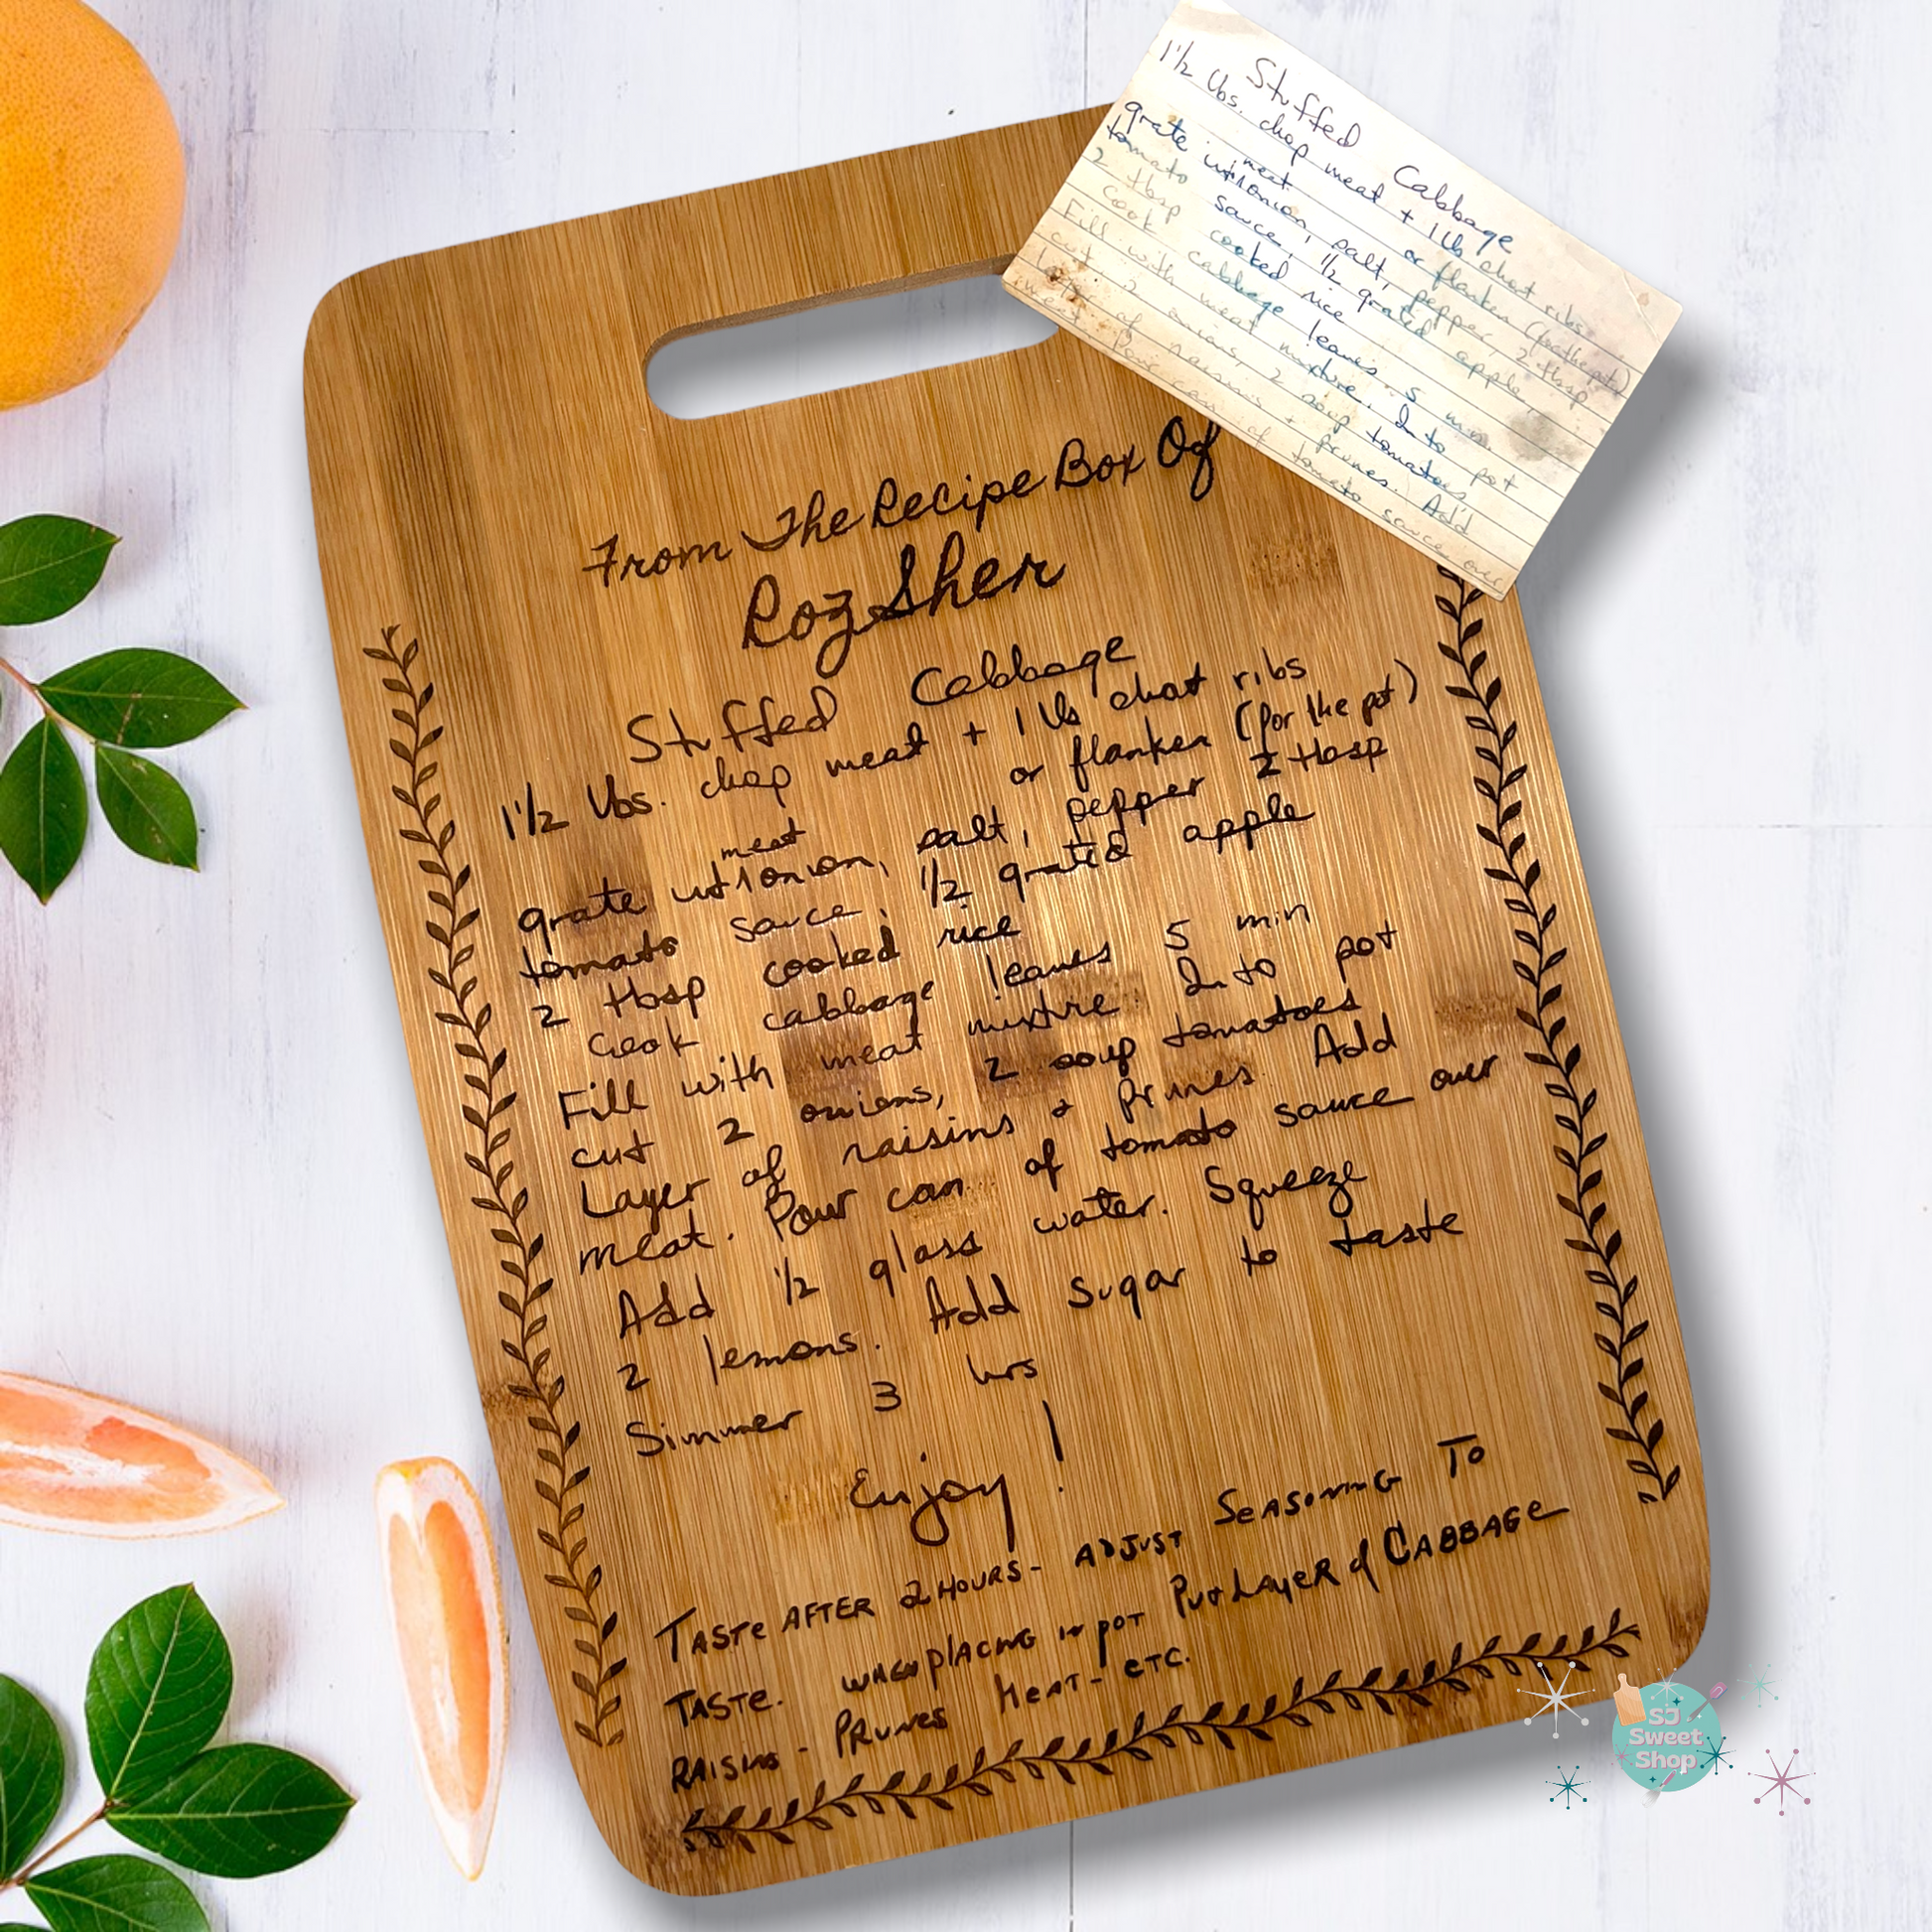 Stuffed Cabbage
1 1/2 lbs. chop meat + 1 lb chat ribs
or flanken (for the pot)
meat
grate into onion, salt, pepper, 2 tbsp
tomato sauce, 1/2 grated apple,
2 tbsp cooked rice
Cook cabbage leaves 5 min.
Fill with meat mixture. Into pot
cut 2 onions, 2 soup tomatoes
layer of raisins + prunes. Add
meat. Pour can of tomato sauce over
From The Recipe Box Of
Roz Sher
Stuffed Cabbage
1 1/2 lbs. chop meat + 1 lb chat ribs
or flanken (for the pot)
meat
grate onion, salt, pepper 2 tbsp
tomato sauce, 1/2 grated apple
2 tbsp cooked rice
Cook cabbage leaves 5 min
Fill with meat mixture. Into pot
cut 2 onions, 2 soup tomatoes
Layer of raisins + prunes. Add
meat. Pour can of tomato sauce over
Add 1/2 glass water. Squeeze
2 lemons. Add sugar to taste
Simmer 3 hrs
Enjoy!
TASTE AFTER 2 HOURS - ADJUST SEASONING TO
TASTE. WHEN PLACING IN POT PUT LAYER of CABBAGE
RAISINS - PRUNES MEAT - ETC.
SJ
Sweet
Shop